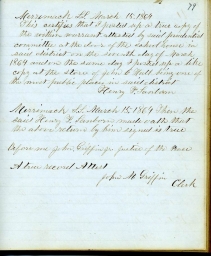 79
Merrimack Lit March 15, 1864
This certifies that I posted up a true copy of
the within warrant attested by said prudential
committee at the door of the school house in
said district on the seventh day of March
1864 and on the same day I posted up a like
copy at the store of John E Hall being one of
the most public places in said district
Henry F. Sanborn
Merrimack Lit March 15, 1864 Then the
said Henry F. Sanborn made oath that
the above return by him signed is true
before me John Griffin justice of the Peace
A true record Attest
John H Griffin
Clerk